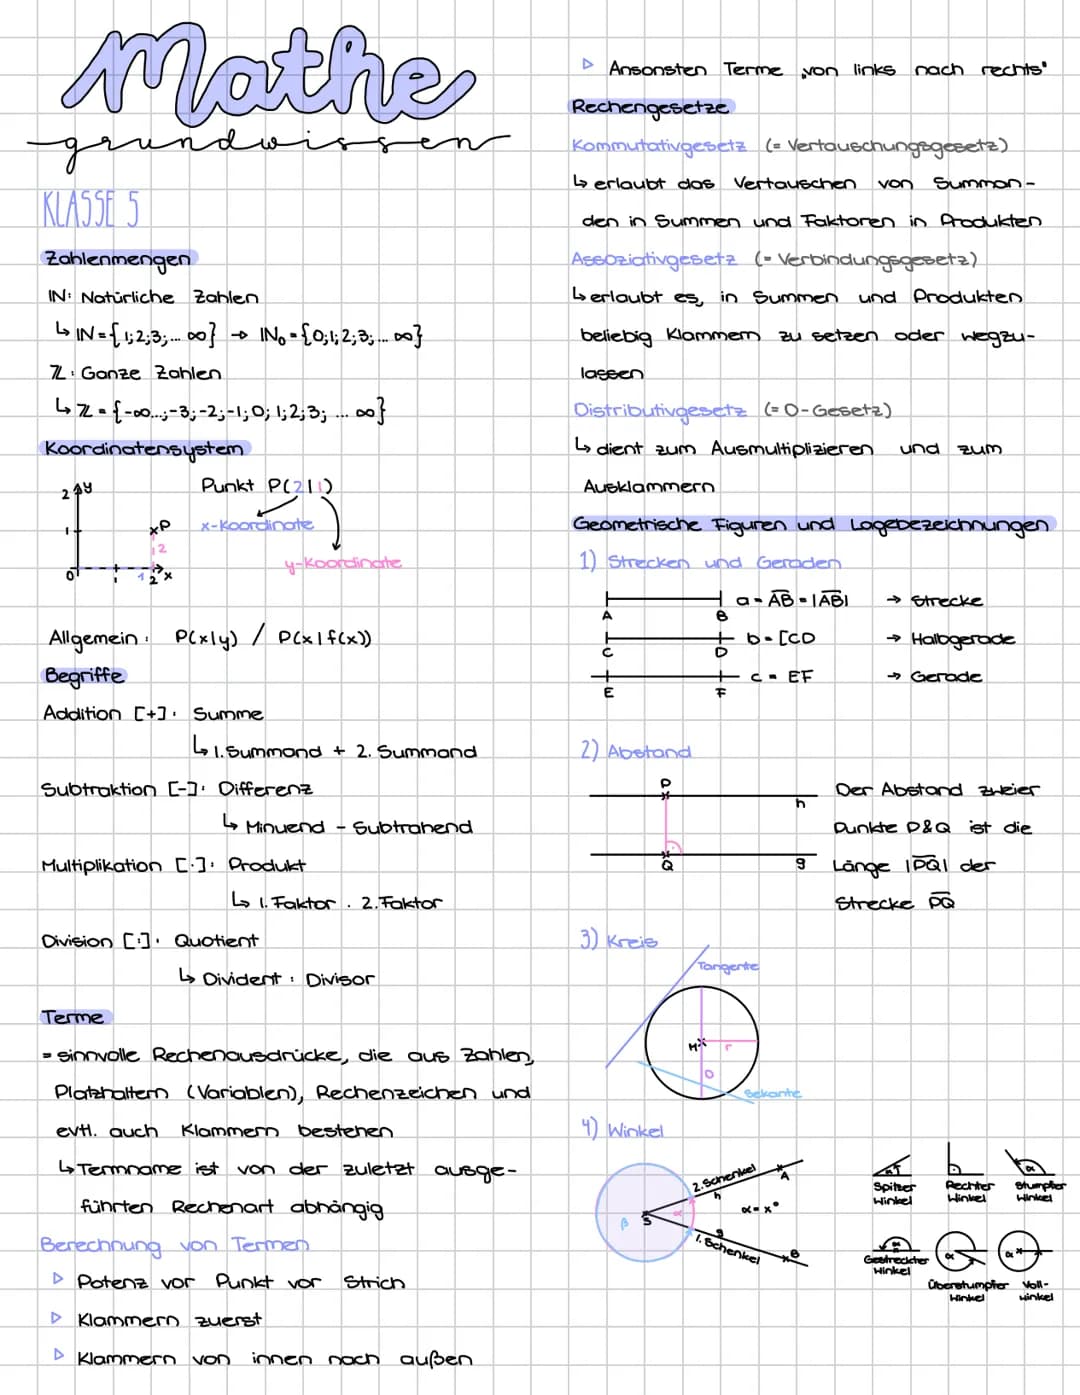 Mathe
grundwissen
KLASSE 5
Zahlenmengen
IN: Natürliche Zahlen
↳ IN = {1;2;3;... ∞} → IN₀ = {0;1;2;3;... ∞}
ℤ: Ganze Zahlen
↳ ℤ = {-∞...;-3;-2;-1;0;1;2;3; ... ∞}
Koordinatensystem
2 y
1
xP
2
0 1 2 x
Punkt P(2|1)
x-Koordinate
y-Koordinate
Allgemein: P(x|y) / P(x|f(x))
Begriffe
Addition [+]: Summe
↳ 1. Summand + 2. Summand
Subtraktion [-]: Differenz
↳ Minuend - Subtrahend
Multiplikation [·]: Produkt
↳ 1. Faktor · 2. Faktor
Division [:]: Quotient
↳ Divident : Divisor
Terme
= sinnvolle Rechenausdrücke, die aus Zahlen,
Platzhaltern (Variablen), Rechenzeichen und
evtl. auch Klammern bestehen
↳ Termname ist von der zuletzt ausge-
führten Rechenart abhängig
Berechnung von Termen
▷ Potenz vor Punkt vor Strich
▷ Klammern zuerst
▷ Klammern von innen nach außen
▷ Ansonsten Terme „von links nach rechts"
Rechengesetze
Kommutativgesetz (= Vertauschungsgesetz)
↳ erlaubt das Vertauschen von Summan-
den in Summen und Faktoren in Produkten
Assoziativgesetz (= Verbindungsgesetz)
↳ erlaubt es, in Summen und Produkten
beliebig Klammern zu setzen oder wegzu-
lassen
Distributivgesetz (= D-Gesetz)
↳ dient zum Ausmultiplizieren und zum
Ausklammern
Geometrische Figuren und Lagebezeichnungen
1) Strecken und Geraden
A B a = A̅B̅ = |A̅B̅| → Strecke
C D b = [CD → Halbgerade
E F c = EF → Gerade
2) Abstand
P
h
Q
g
Der Abstand zweier
Punkte P&Q ist die
Länge |P̅Q̅| der
Strecke P̅Q̅
3) Kreis
Tangente
M r
D
Sekante
4) Winkel
2. Schenkel
A
h
α = x°
β S α
g
1. Schenkel
B
α
Spitzer Winkel
Rechter Winkel
α
Stumpfer Winkel
α
Gestreckter Winkel
α
Überstumpfer Winkel
α
Voll-
winkel